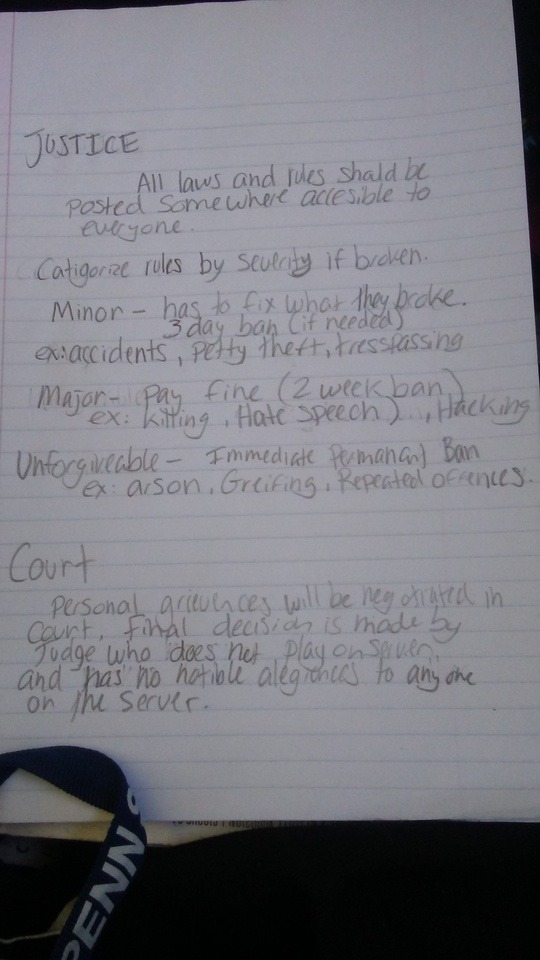 JUSTICE
All laws and rules should be
posted somewhere accesible to
everyone.
Catigorize rules by severity if broken.
Minor - has to fix what they broke.
3 day ban (if needed)
ex: accidents, petty theft, tresspassing
Major - Pay fine (2 week ban)
ex: killing, Hate speech), Hacking
Unforgiveable - Immediate Permanant Ban
ex: arson, Greifing, Repeated offences.
Court
Personal grievences will be negotiated in
court. final decision is made by
Judge who does not play on server.
and has no notible alegiences to anyone
on the server.
PENN